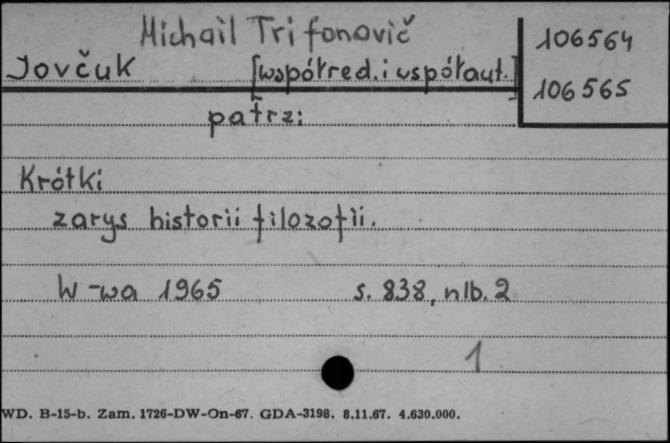 Michail Trifonovič
Jovčuk [współred. i współaut.]
106564
106565
patrz:
Krótki
zarys historii filozofii.
W-wa 1965 s. 838, nlb. 2
1
WD. B-15-b. Zam. 1726-DW-On-67. GDA-3198. 8.11.67. 4.630.000.